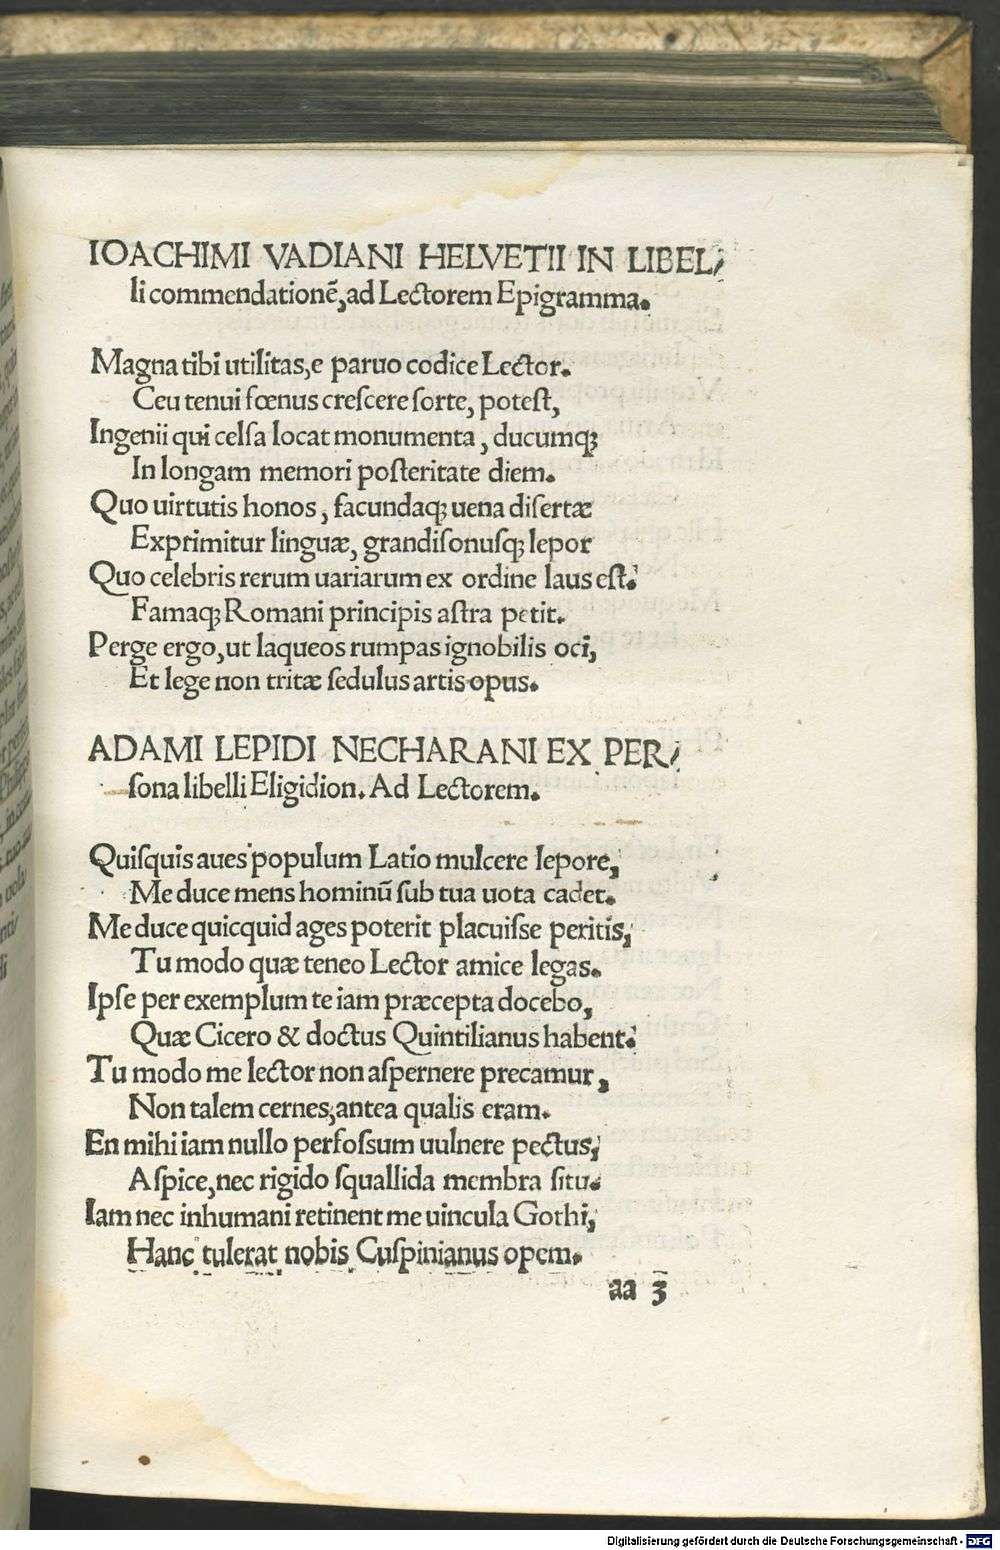 IOACHIMI VADIANI HELVETII IN LIBEL/
li commendationē, ad Lectorem Epigramma.
Magna tibi utilitas, e paruo codice Lector.
Ceu tenui fœnus creſcere ſorte, poteſt,
Ingenii qui celſa locat monumenta, ducumqꝫ
In longam memori poſteritate diem.
Quo uirtutis honos, facundaqꝫ uena diſertæ
Exprimitur linguæ, grandiſonuſqꝫ lepor
Quo celebris rerum uariarum ex ordine laus eſt:
Famaqꝫ Romani principis aſtra petit.
Perge ergo, ut laqueos rumpas ignobilis oci,
Et lege non tritæ ſedulus artis opus.
ADAMI LEPIDI NECHARANI EX PER/
ſona libelli Eligidion. Ad Lectorem.
Quiſquis aues populum Latio mulcere lepore,
Me duce mens hominū ſub tua uota cadet.
Me duce quicquid ages poterit placuiſſe peritis,
Tu modo quæ teneo Lector amice legas.
Ipſe per exemplum te iam præcepta docebo,
Quæ Cicero & doctus Quintilianus habent:
Tu modo me lector non aſpernere precamur,
Non talem cernes, antea qualis eram.
En mihi iam nullo perfoſſum uulnere pectus,
Aſpice, nec rigido ſquallida membra ſitu.
Iam nec inhumani retinent me uincula Gothi,
Hanc tulerat nobis Cuſpinianus opem.
aa 3
Digitalisierung gefördert durch die Deutsche Forschungsgemeinschaft - DFG